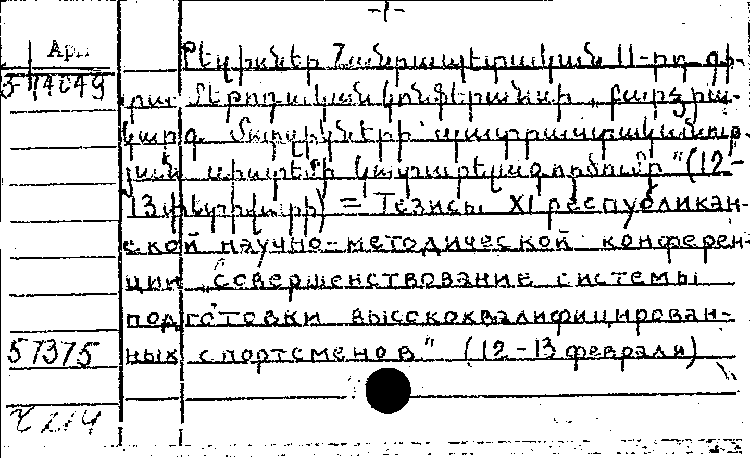 -1-
Арм
5-14049
Թեզիսներ Հանրապետական 11-րդ գի-
տա մեթոդական կոնֆերանսի „Բարձրա-
կարգ մարզիկների պատրաստականութ-
յան սիստեմի կատարելագործումը" (12-
13 փետրվարի) = Тезисы XI республикан-
ской научно-методической конферен-
ции „Совершенствование системы
подготовки высококвалифицирован-
57375 ных спортсменов" (12-13 февраля)